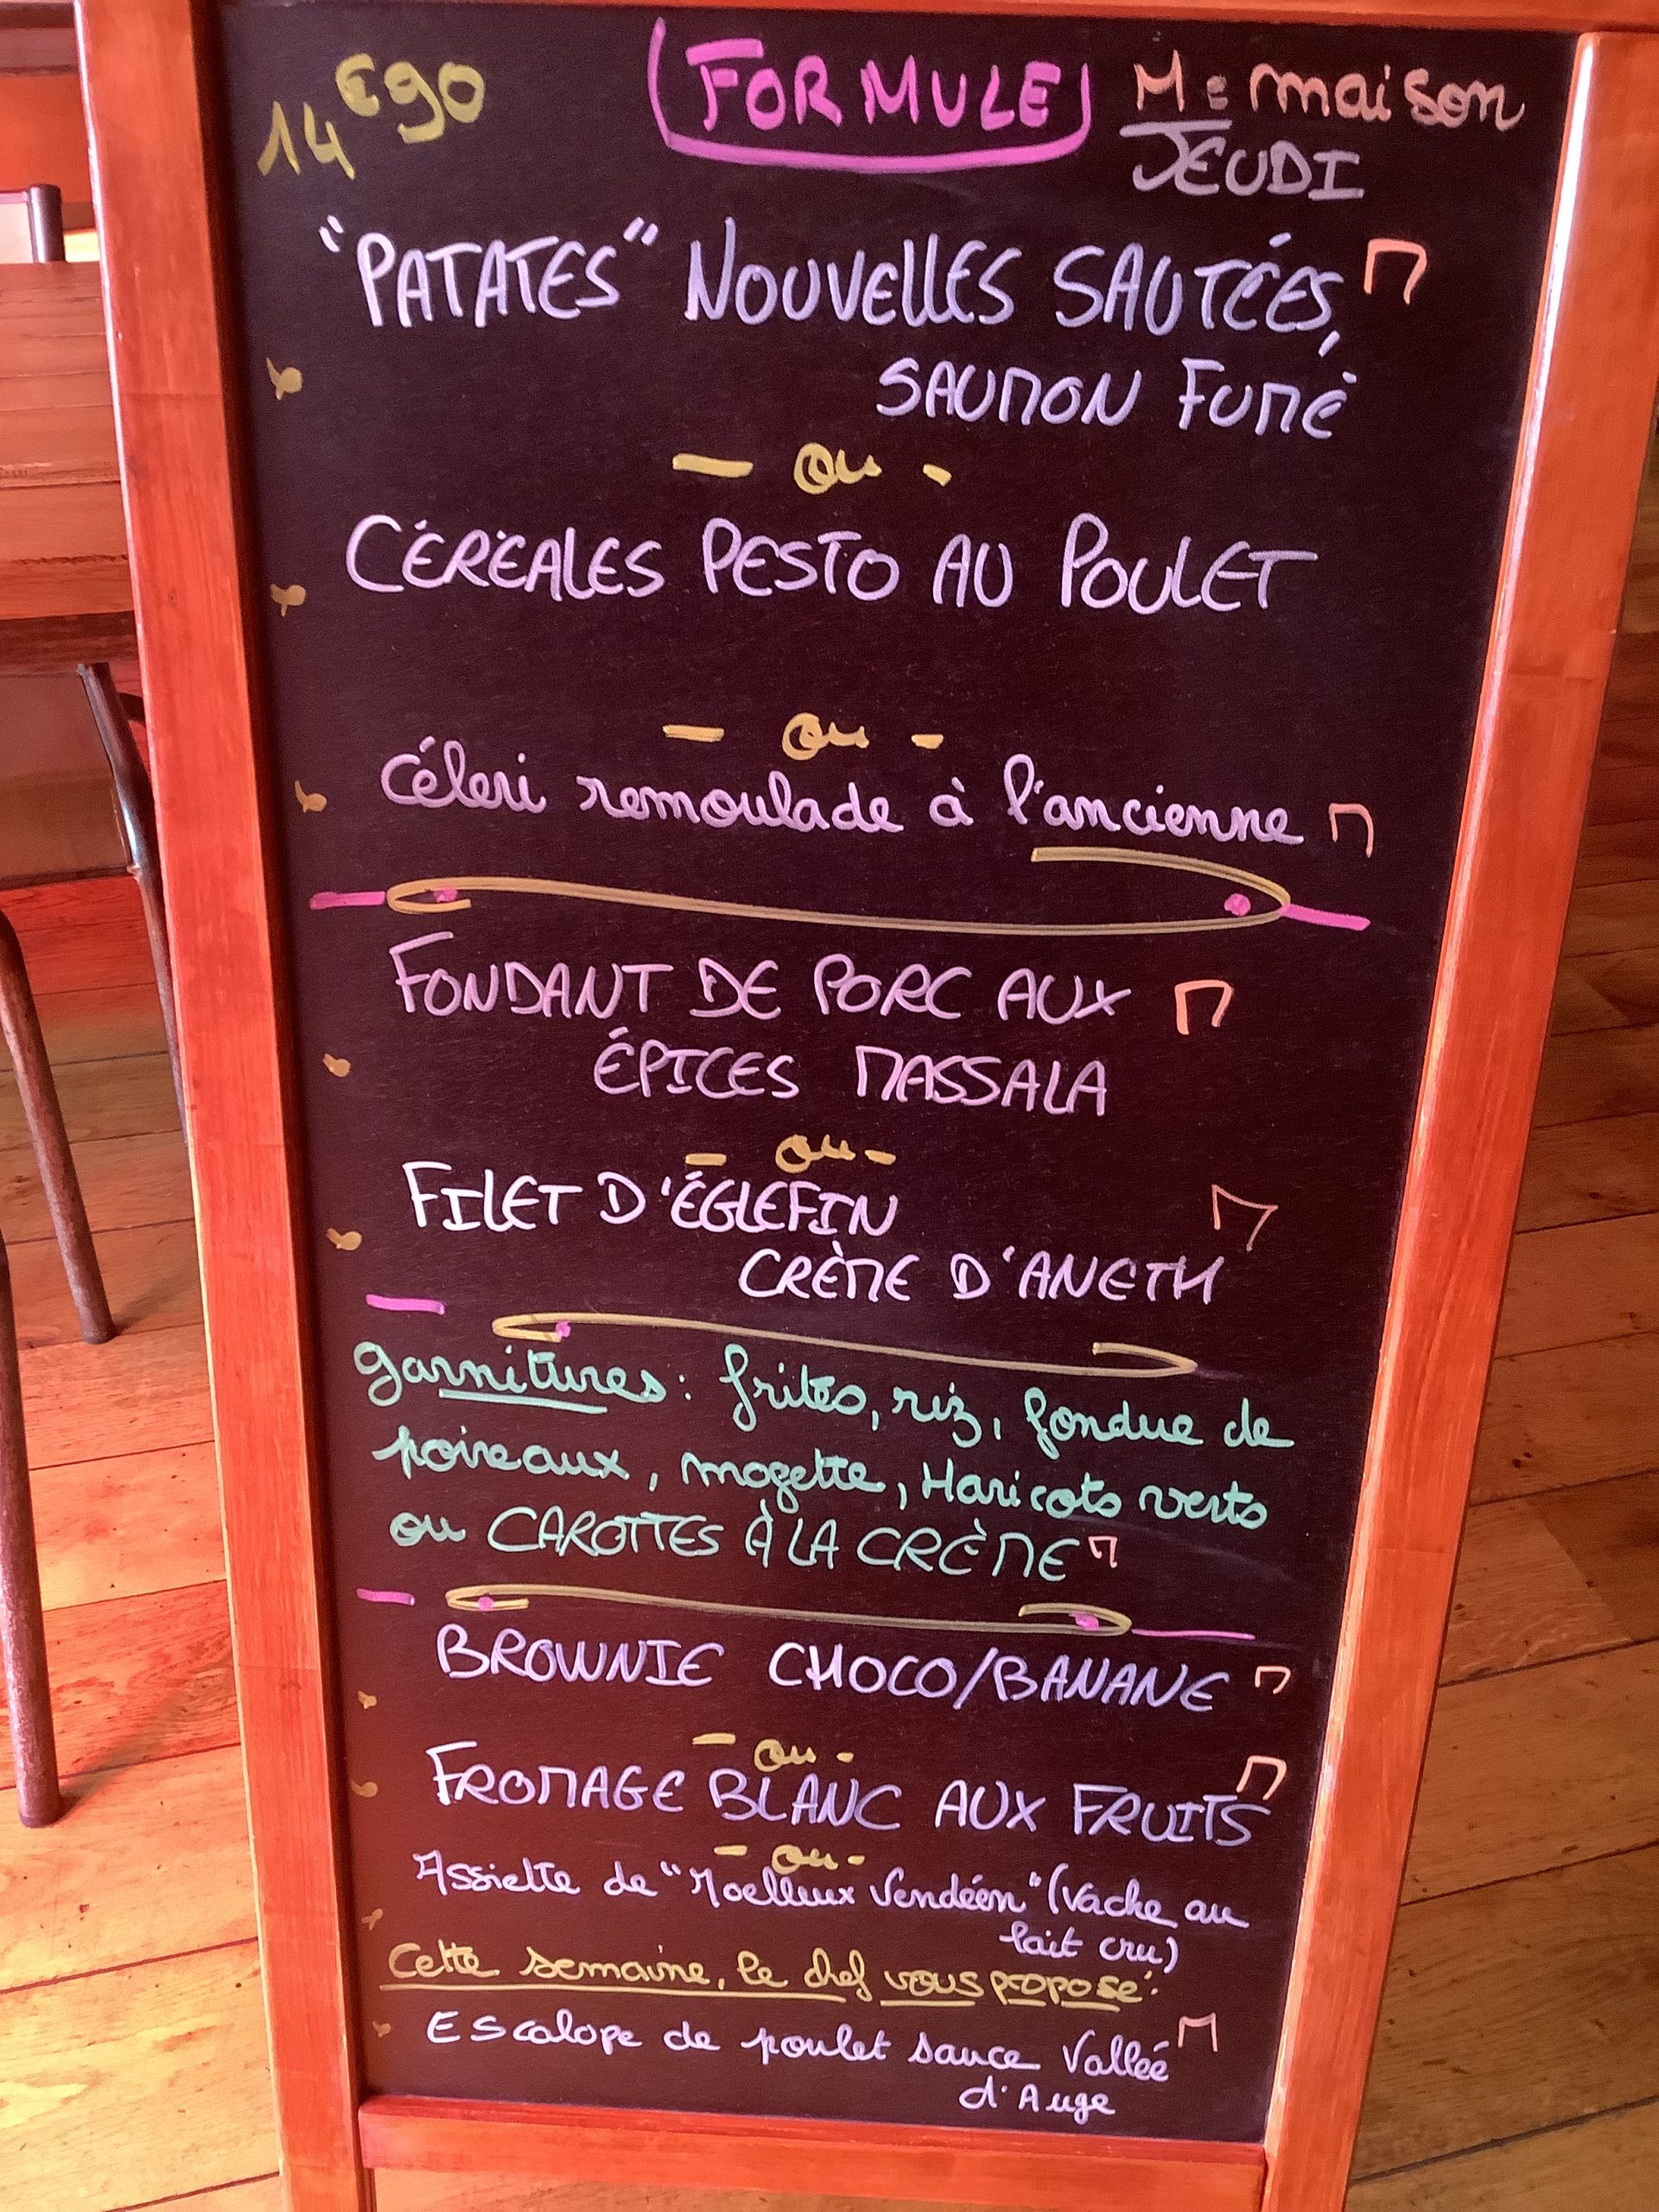 14€90 FORMULE M = maison
JEUDI
"PATATES" NOUVELLES SAUTÉES, M
SAUMON FUMÉ
- ou -
CÉRÉALES PESTO AU POULET
- ou -
Céleri remoulade à l'ancienne M
FONDANT DE PORC AUX M
ÉPICES MASSALA
- ou -
FILET D'ÉGLEFIN M
CRÈME D'ANETH
garnitures : frites, riz, fondue de
poireaux, mogette, Haricots verts
ou CAROTTES À LA CRÈME M
BROWNIE CHOCO/BANANE M
- ou -
FROMAGE BLANC AUX FRUITS M
- ou -
Assiette de "Moelleux Vendéen" (Vache au
lait cru)
Cette semaine, le chef vous propose :
Escalope de poulet sauce Valleé M
d'Auge